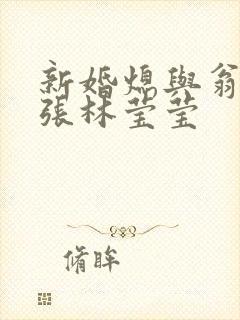 新婚熄與翁
張林莹莹
脩眸